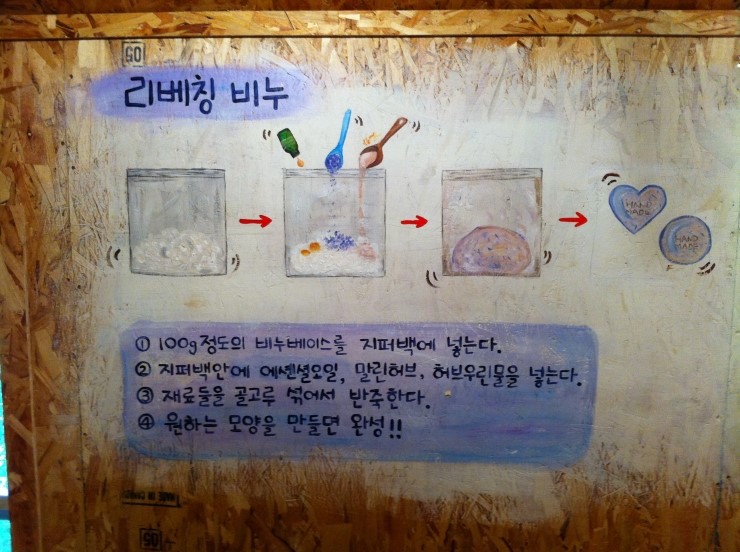 05
리베칭 비누
HAND
MADE
HAND
MADE
① 100g정도의 비누베이스를 지퍼백에 넣는다.
② 지퍼백안에 에센셜오일, 말린허브, 허브우린물을 넣는다.
③ 재료들을 골고루 섞어서 반죽한다.
④ 원하는 모양을 만들면 완성!!
MADE IN
05